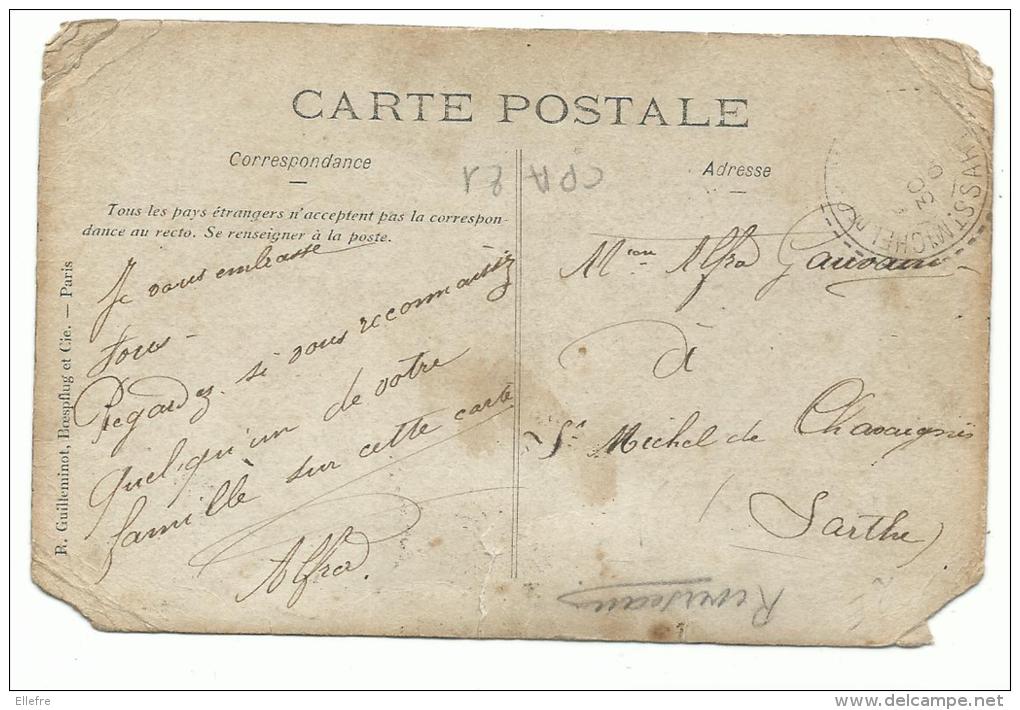 CARTE POSTALE
Correspondance
Tous les pays étrangers n'acceptent pas la correspon-
dance au recto. Se renseigner à la poste.
Je vous embrasse
tous -
Regardez si vous reconnaissiez
quelqu'un de votre
famille sur cette carte
Alfred.
R. Guilleminot, Bœspflug et Cie. — Paris
CPA 81
Adresse
Alfred
à
St Michel de Chavaignes
(Sarthe)
ST MICHEL DE
30
Ellefre
delcampe.net